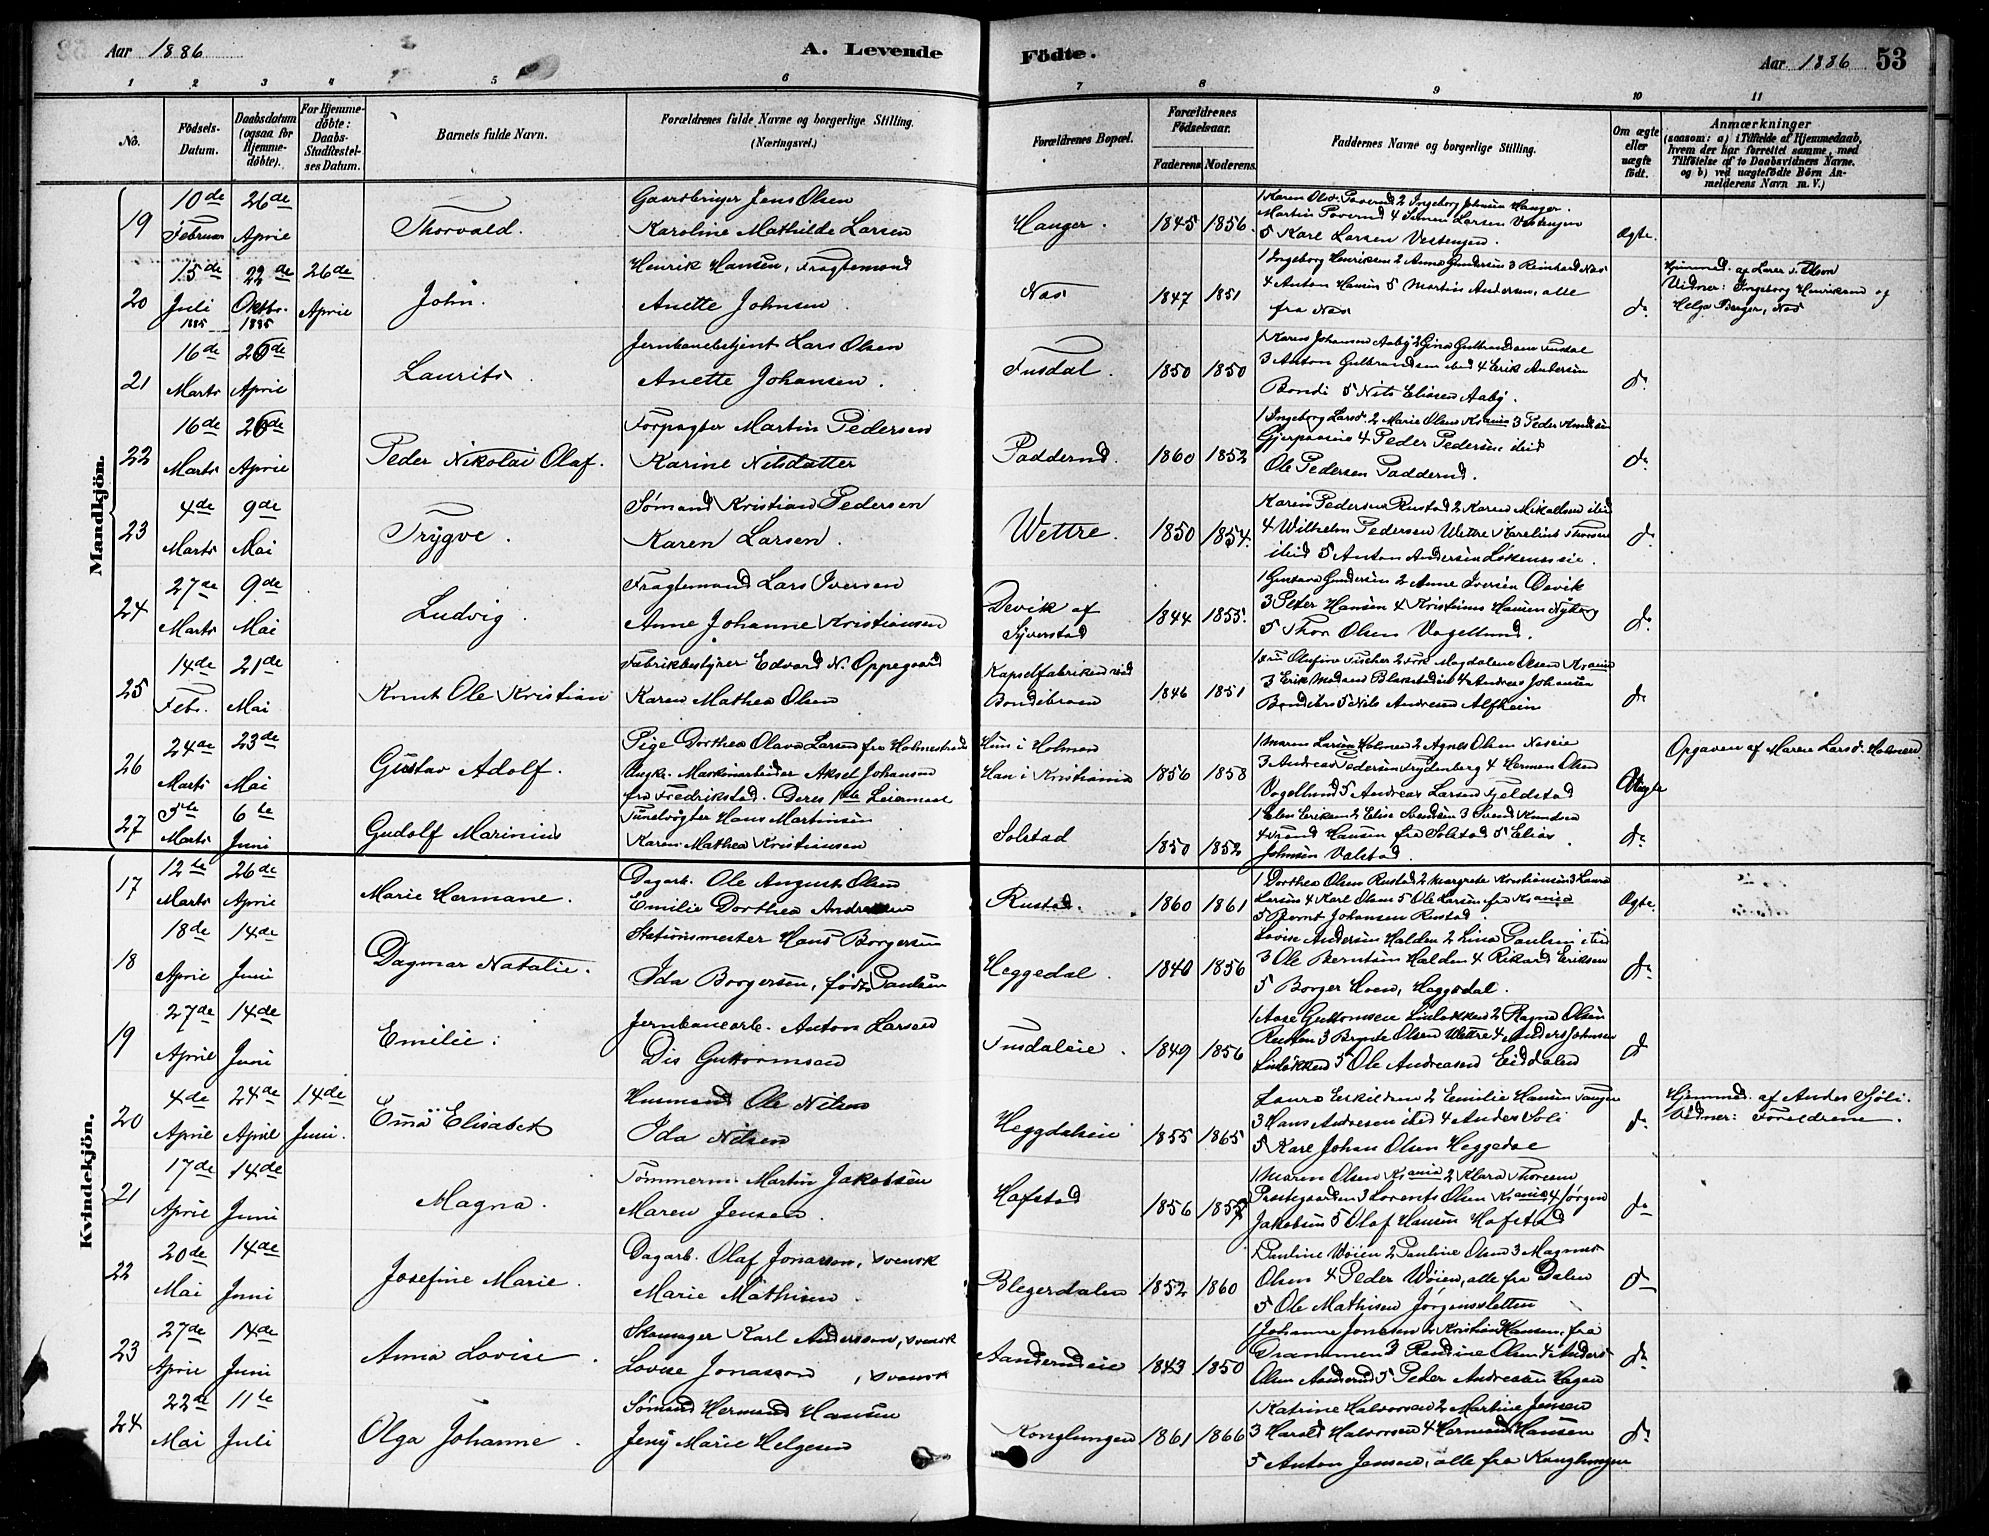 Aar 1886
A. Levende
Födte.
Aar 1886
53
1 2 3 4 5 6 7 8 9 10 11
No.
Födsels-Datum.
Daabsdatum (ogsaa for Hjemme-döbte).
For Hjemme-döbte: Daabs-Stadfæstelses Datum.
Barnets fulde Navn.
Forældrenes fulde Navne og borgerlige Stilling. (Næringsvei.)
Forældrenes Bopæl.
Forældrenes Födselsaar.
Faderens. Moderens.
Faddernes Navne og borgerlige Stilling.
Om ægte eller uægte födt.
Anmærkninger
(saasom: a) i Tilfælde af Hjemmedaab, hvem der har forrettet samme, med Tilföielse af to Daabsvidners Navne. og b) ved uægtefödte Börn Anmelderens Navn m. V.)
Mandkjön.
19 10de Februar 26de April Thorvald. Gaardbruger Jens Olsen
Karoline Mathilde Larsen Hanger. 1845 1856.
Martin Poverud 4 Simen Larsen Vestengen
5 Karl Larsen Vestengen. Ægte.
20 15de Juli 1885 22de Oktbr. 1885 26de April John. Henrik Hansen, Fragtemand
Anette Johnsen Næs 1847 1851
1 Ingeborg Henriksen 2 Anna Gundersen 3 Reinhard Næs
4 Anton Hansen 5 Martin Andersen, alle
fra Næs do
Vidner: Ingeborg Henriksen og
Helga Berger, Næs
21 16de Marts 26de April Laurits. Jernbanebetjent Lars Olsen
Anette Johansen. Fusdal. 1850 1850
3 Anton Gulbrandsen ibid 4 Erik Andersen
Bondi 5 Nils Eliasen Aaby. do
22 16de Marts 26de April Peder Nikolai Olaf. Forpagter Martin Pedersen
Karine Nilsdatter Paddernd. 1860 1852
4 Peder Pedersen ibid
Ole Pedersen Paddernd. do
23 4de Marts 9de Mai Trygve. Sømand Kristian Pedersen
Karen Larsen. Wettre. 1850 1854.
Karen Pedersen Rustad 2 Karen Mikalsen ibid
4 Wilhelm Pedersen Wettre
ibid 5 Anton Andersen do
24 27de Marts 9de Mai Ludvig. Fragtemand Lars Iversen
Anne Johanne Kristiansen Devik af Syverstad 1844 1855.
1 Gustava Gundersen 2 Anne Iversen Devik
3 Peter Hansen 4 Kristians Hansen Nyborg
5 Thor Olsen Vogellund. do
25 14de Febr. 21de Mai Knut Ole Kristian Fabrikbestyrer Edvard N. Oppegaard
Karen Mathea Olsen Kapselfabriken ved Bondibroen 1846 1851
1 Fru Olufine Fischer 2 Frk Magdalene Olsen Kr.ania
4 Andreas Johansen
Bondibro 5 Nils Andresen Alfheim do
26 24de Marts 23de Mai Gustav Adolf. Pige Dorthea Olava Larsen fra Holmestrand
Ungk. Maskinarbeider Aksel Johansen
fra Fredrikstad. Deres 1ste Leiermaal
Hun i Holmen Han i Kristiania 1856 1858
1 Maren Larsen Holmen 2 Agnes Olsen Næseie
3 Andreas Pedersen Frydenberg 4 Herman Olsen
Vogellund 5 Andreas Larsen Fjeldstad Uægte
Opgaven af Maren Larsd. Holmen
27 5te Marts 6te Juni Gudolf Marinius Tunelvogter Hans Martinsen
Karen Mathea Kristiansen Solstad 1850 1852
1 Elen Eriksen 2 Elise Svendsen 3 Svend Knudsen
4 Hansen fra Solstad 5 Elias
Johnsen Valstad. do
Kvindekjön.
17 12te Marts 26de April Marie Hermane. Dagarb. Ole August Olsen
Emilie Dorthea Andersen Rustad. 1860 1861
1 Dorthea Olsen Rustad 2 Margrete Kristiansen 3 Laura
Larsen 4 Karl Olsen 5 Ole Larsen fra Kr.ania
5 Bernt Johansen Rustad. Ægte.
18 18de April 14de Juni Dagmar Natalie. Stationsmester Hans Borgersen
Ida Borgersen, født Paulsen Heggedal. 1840 1856
Lovise Andersen Halden 2 Lina Paulsen ibid
3 Ole Berntsen Halden 4 Rikard Eriksen
5 Borger Hoen, Heggedal. do
19 27de April 14de Juni Emilie. Jernbanearb. Anton Larsen
Dis Guttormsen Fusdaleie. 1849 1856
1 Aase Guttormsen Linløkken 2 Ragna Olsen
Rusten 3 Brynte Olsen Wettre 4 Anders Johnsen
Linløkken 5 Ole Andreasen Eiddalen do
20 4de April 24de April 14de Juni. Ema Elisabet Husmand Ole Nilsen
Ida Nilsen Heggdaleie 1855 1865
Laura Eskildsen 2 Emilie Hansen Tangen
3 Hans Andresen ibid 4 Anders Soli
5 Karl Johan Olsen Heggedal do
Hjemmed. af Andes Sjöli.
Vidner: Forældrene.
21 17de April 14de Juni Magna. Tømmerm. Martin Jakobsen
Maren Jensen. Hofstad 1856 1857
1 Maren Olsen Kr.ania 2 Klara Thoresen
Prestegaarden 3 Lorents Olsen Kr.ania 4 Jørgen
Jakobsen 5 Olaf Hansen Hofstad do
22 20de Mai 14de Juni Josefine Marie. Dagarb. Olaf Jonasson, svensk
Marie Mathisen Blegerdalen 1852 1860
1 Pauline Wøien 2 Pauline Olsen 3 Magnus
Olsen 4 Peder Wøien, alle fra Dalen
5 Ole Mathisen Jørgensletten do
23 27de April 14de Juni Anna Lovise. Skomager Karl Andersson, svensk
Lovise Jonasson, svensk Aanderudeie 1843 1850
1 Johanne Jonasen 2 Kristian Hansen, fra
Drammen 3 Randine Olsen 4 Anders
Olsen Aanderud 5 Peder Andresen Hagen do
24 22de Mai 11te Juli Olga Johanne. Sømand Hermand Hansen
Jeny Marie Helgesen Konglungen 1861 1866
1 Katrine Halvorsen 2 Martine Jensen
3 Harald Halvorsen 4 Hermand Hansen
5 Anton Jensen, alle fra Konglungen do